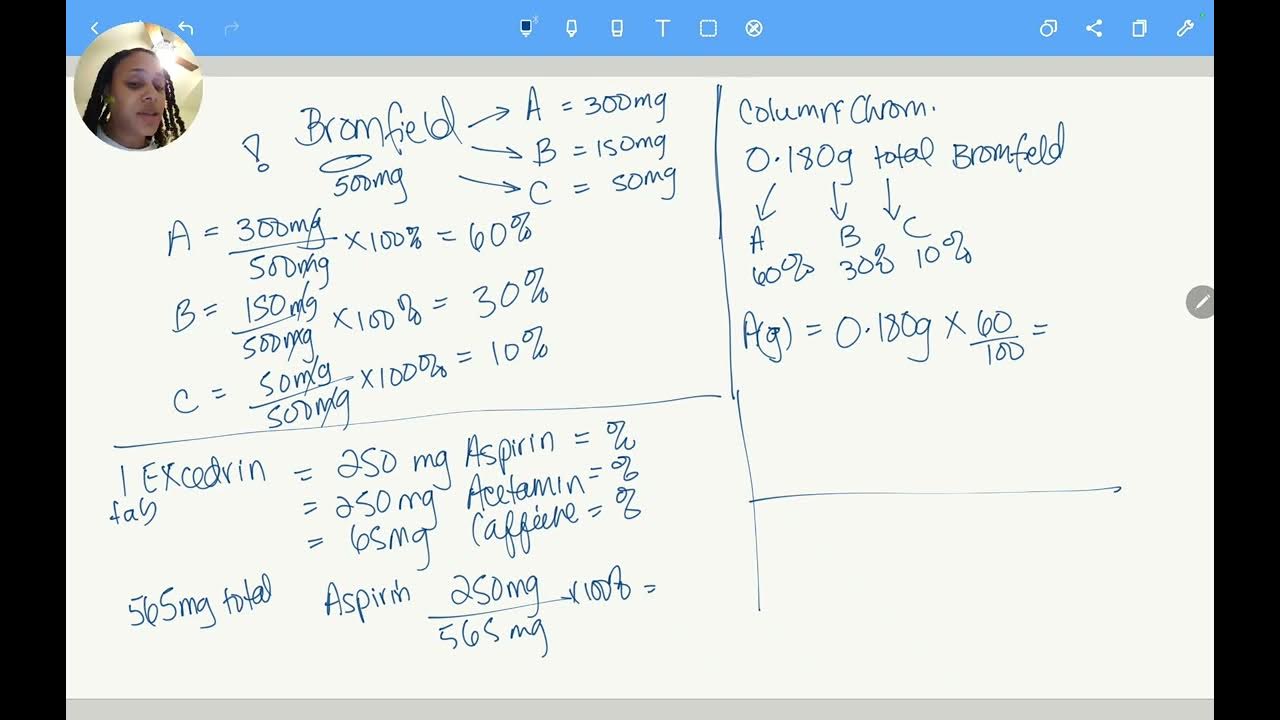 Bromfield → A = 300mg
→ B = 150mg
500mg → C = 50mg
A = 300mg/500mg × 100% = 60%
B = 150mg/500mg × 100% = 30%
C = 50mg/500mg × 100% = 10%
1 Excedrin = 250 mg Aspirin = %
tab = 250mg Acetamin = %
= 65mg Caffeine = %
565mg total Aspirin 250mg/565mg × 100% =
Column Chrom.
0.180g total Bromfield
A B C
60% 30% 10%
A(g) = 0.180g × 60/100 =
T